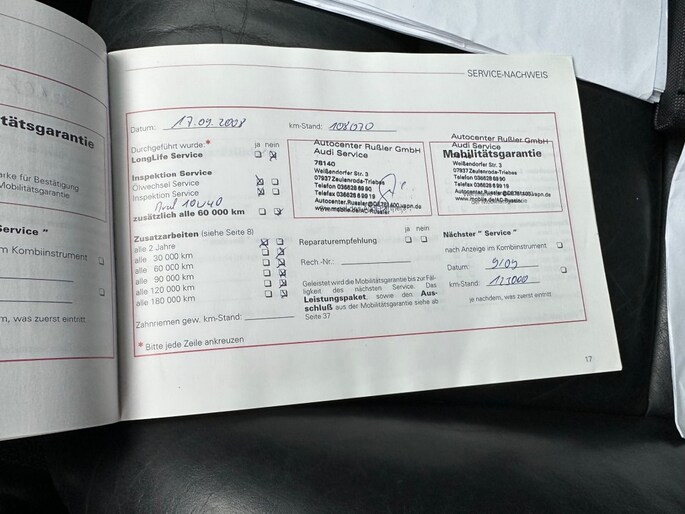 tätsgarantie
rke für Bestätigung
Mobilitätsgarantie
Service "
m Kombiinstrument
m, was zuerst eintritt
SERVICE-NACHWEIS
Datum: 17.09.2008 km-Stand: 108070
Durchgeführt wurde:* ja nein
LongLife Service
Inspektion Service
Ölwechsel Service
Inspektion Service
10W40
zusätzlich alle 60 000 km
Zusatzarbeiten (siehe Seite 8)
alle 2 Jahre
alle 30 000 km
alle 60 000 km
alle 90 000 km
alle 120 000 km
alle 180 000 km
Zahnriemen gew. km-Stand:
* Bitte jede Zeile ankreuzen
Autocenter Rußler GmbH
Audi Service
78140
Weißendorfer Str. 3
07937 Zeulenroda-Triebes
Telefon 036628 69 90
Telefax 036628 6 99 19
www.mobile.de/AC-Russler
ja nein
Reparaturempfehlung
Rech.-Nr.:
Geleistet wird die Mobilitätsgarantie bis zur Fäl-
ligkeit des nächsten Service. Das
Leistungspaket, sowie den Aus-
schluß aus der Mobilitätsgarantie siehe ab
Seite 37
Autocenter Rußler GmbH
Audi Service
Mobilitätsgarantie
Weißendorfer Str. 3
07937 Zeulenroda-Triebes
Telefon 036628 69 90
Telefax 036628 6 99 19
www.mobile.de/AC-Russler
Nächster " Service "
nach Anzeige im Kombiinstrument
Datum: 9/09
km-Stand: 123000
je nachdem, was zuerst eintritt
17